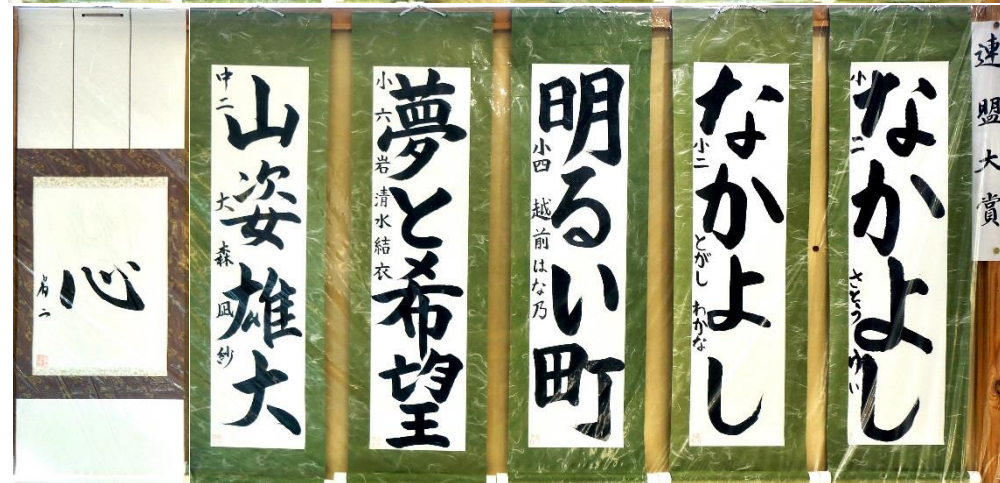 連盟大賞
なかよし
小二 さとう ゆい
なかよし
小二 とがし わかな
明るい町
小四 越前はな乃
夢と希望
小六 岩清水結衣
山姿雄大
中二 大森凪紗
心